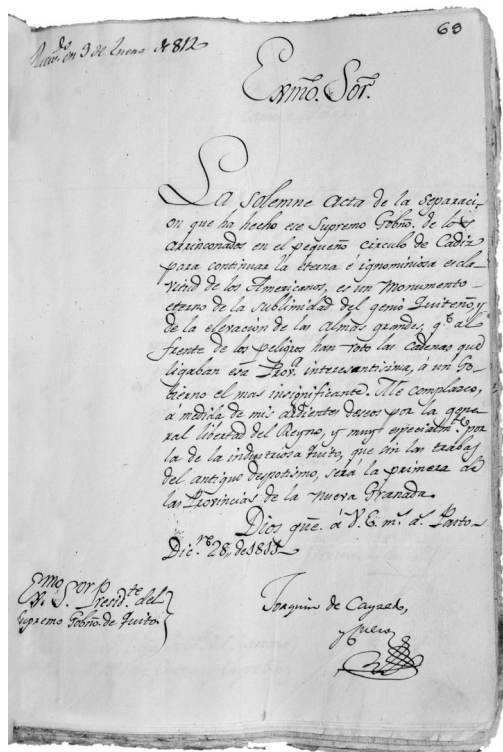 63
en 3 de Enero de 812
Exmo. Sor.
La solemne acta de la separaci-
on que ha hecho ese Supremo Gobno. de los
arrinconados en el pequeño circulo de Cadiz
para continuar la eterna é ignominiosa escla-
vitud de los Americanos, es un monumento
eterno de la sublimidad del genio Quiteño, y
de la elevacion de las almas grandes, qe. al
frente de los peligros han roto las cadenas que
ligaban esa Prova. interesantisima, á un Go-
bierno el mas insignificante. Me complazco,
á medida de mis ardientes deseos por la gene-
ral libertad del Reyno, y muy especialmte. por
la de la industriosa Quito, que sin las trabas
del antiguo despotismo, será la primera de
las Provincias de la nueva Granada.
Dios gue. á V.E. ms. as. Pasto
Dice. 28, de 1811
Joaquin de Cayzedo,
y Cuero
Exmo. Sor. Presidte. del
Supremo Gobno. de Quito